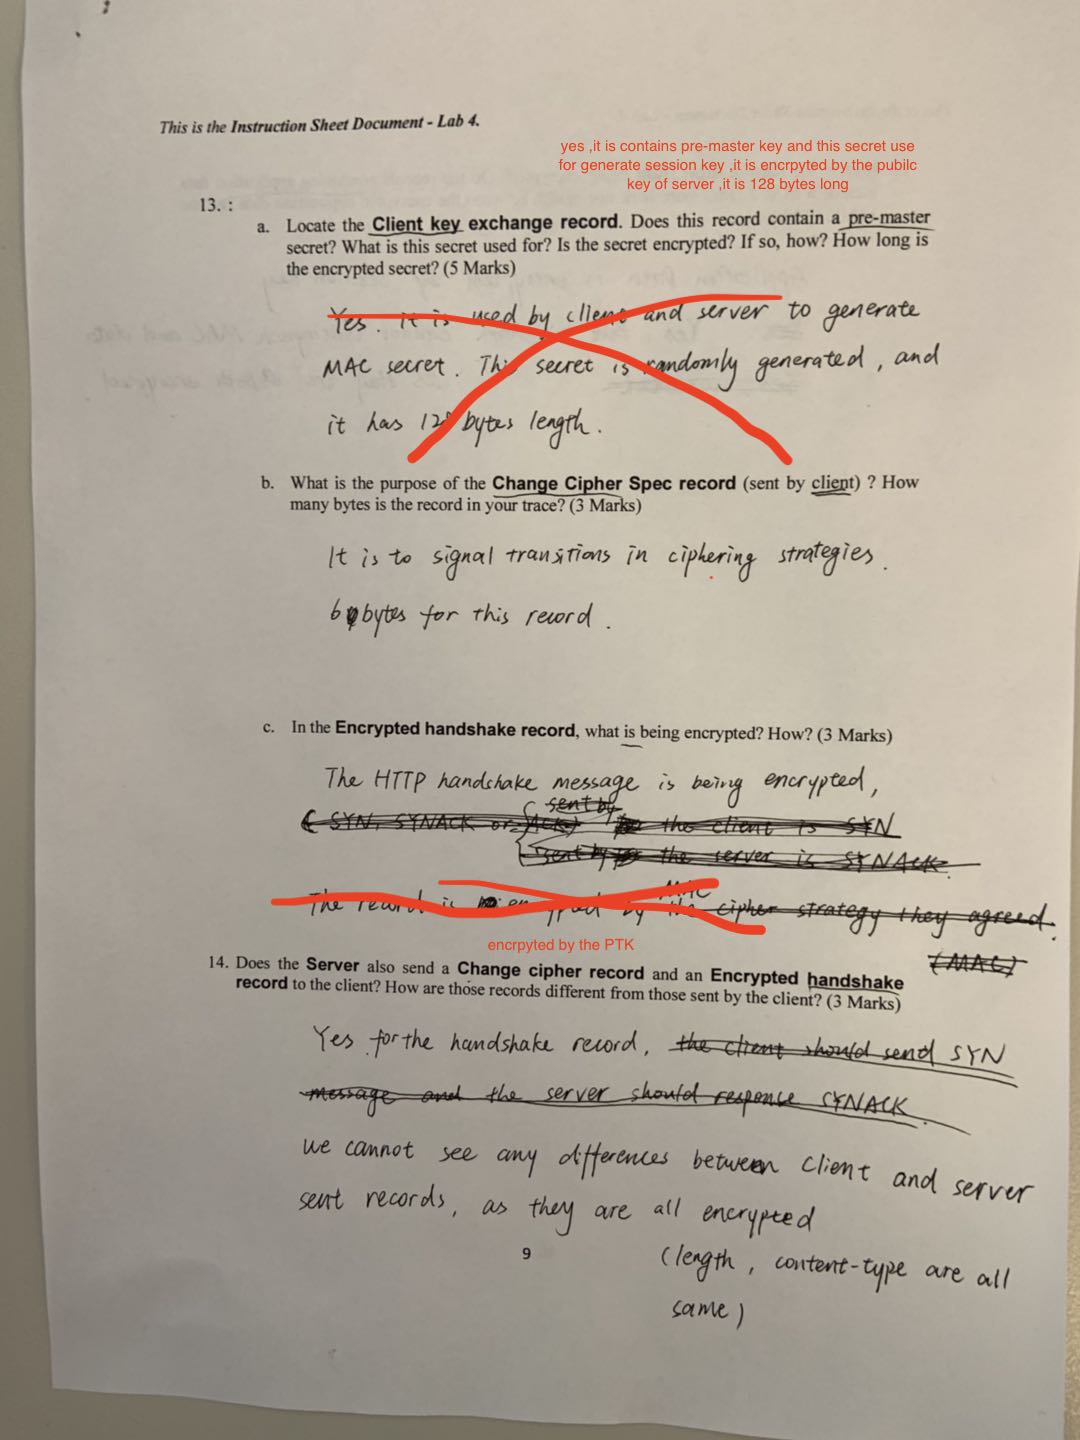 This is the Instruction Sheet Document - Lab 4.
yes ,it is contains pre-master key and this secret use
for generate session key ,it is encrpyted by the pubilc
key of server ,it is 128 bytes long
13. :
a. Locate the Client key exchange record. Does this record contain a pre-master
secret? What is this secret used for? Is the secret encrypted? If so, how? How long is
the encrypted secret? (5 Marks)
Yes. It is used by client and server to generate
MAC secret. This secret is randomly generated, and
it has 128 bytes length.
b. What is the purpose of the Change Cipher Spec record (sent by client) ? How
many bytes is the record in your trace? (3 Marks)
It is to signal transitions in ciphering strategies.
6 bytes for this record.
c. In the Encrypted handshake record, what is being encrypted? How? (3 Marks)
The HTTP handshake message is being encrypted,
sent by
( SYN, SYNACK or ACK) the client is SYN
sent by the server is SYNACK.
MAC
The record is encrypted by the cipher strategy they agreed.
(MAC)
encrpyted by the PTK
14. Does the Server also send a Change cipher record and an Encrypted handshake
record to the client? How are those records different from those sent by the client? (3 Marks)
Yes for the handshake record, the client should send SYN
message and the server should response SYNACK.
we cannot see any differences between client and server
sent records, as they are all encrypted
(length, content-type are all
same)
9